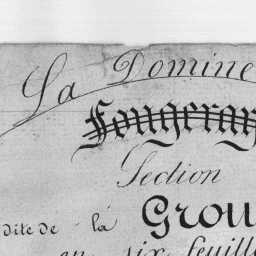 La Domine
Fougeray
Section
dite de la Grou
en six feuill